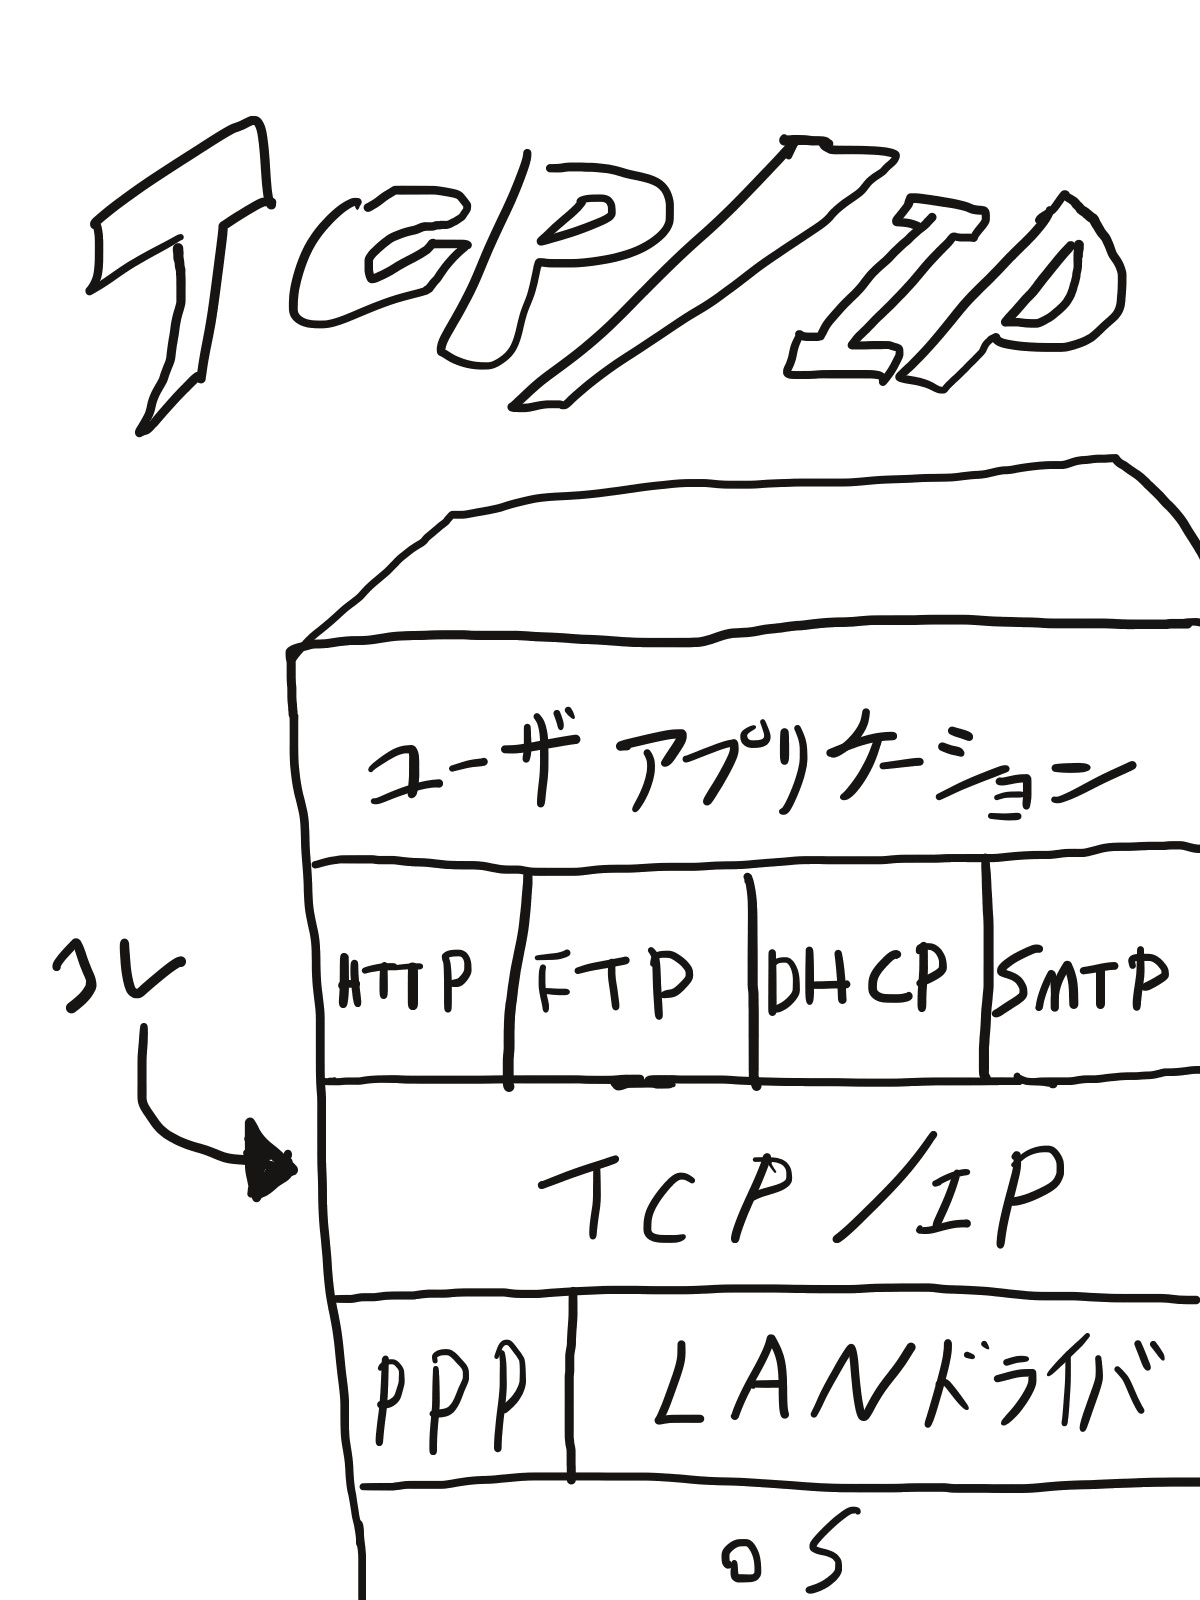 TCP/IP
ユーザアプリケーション
HTTP FTP DHCP SMTP
コレ
TCP/IP
PPP LANドライバ
OS